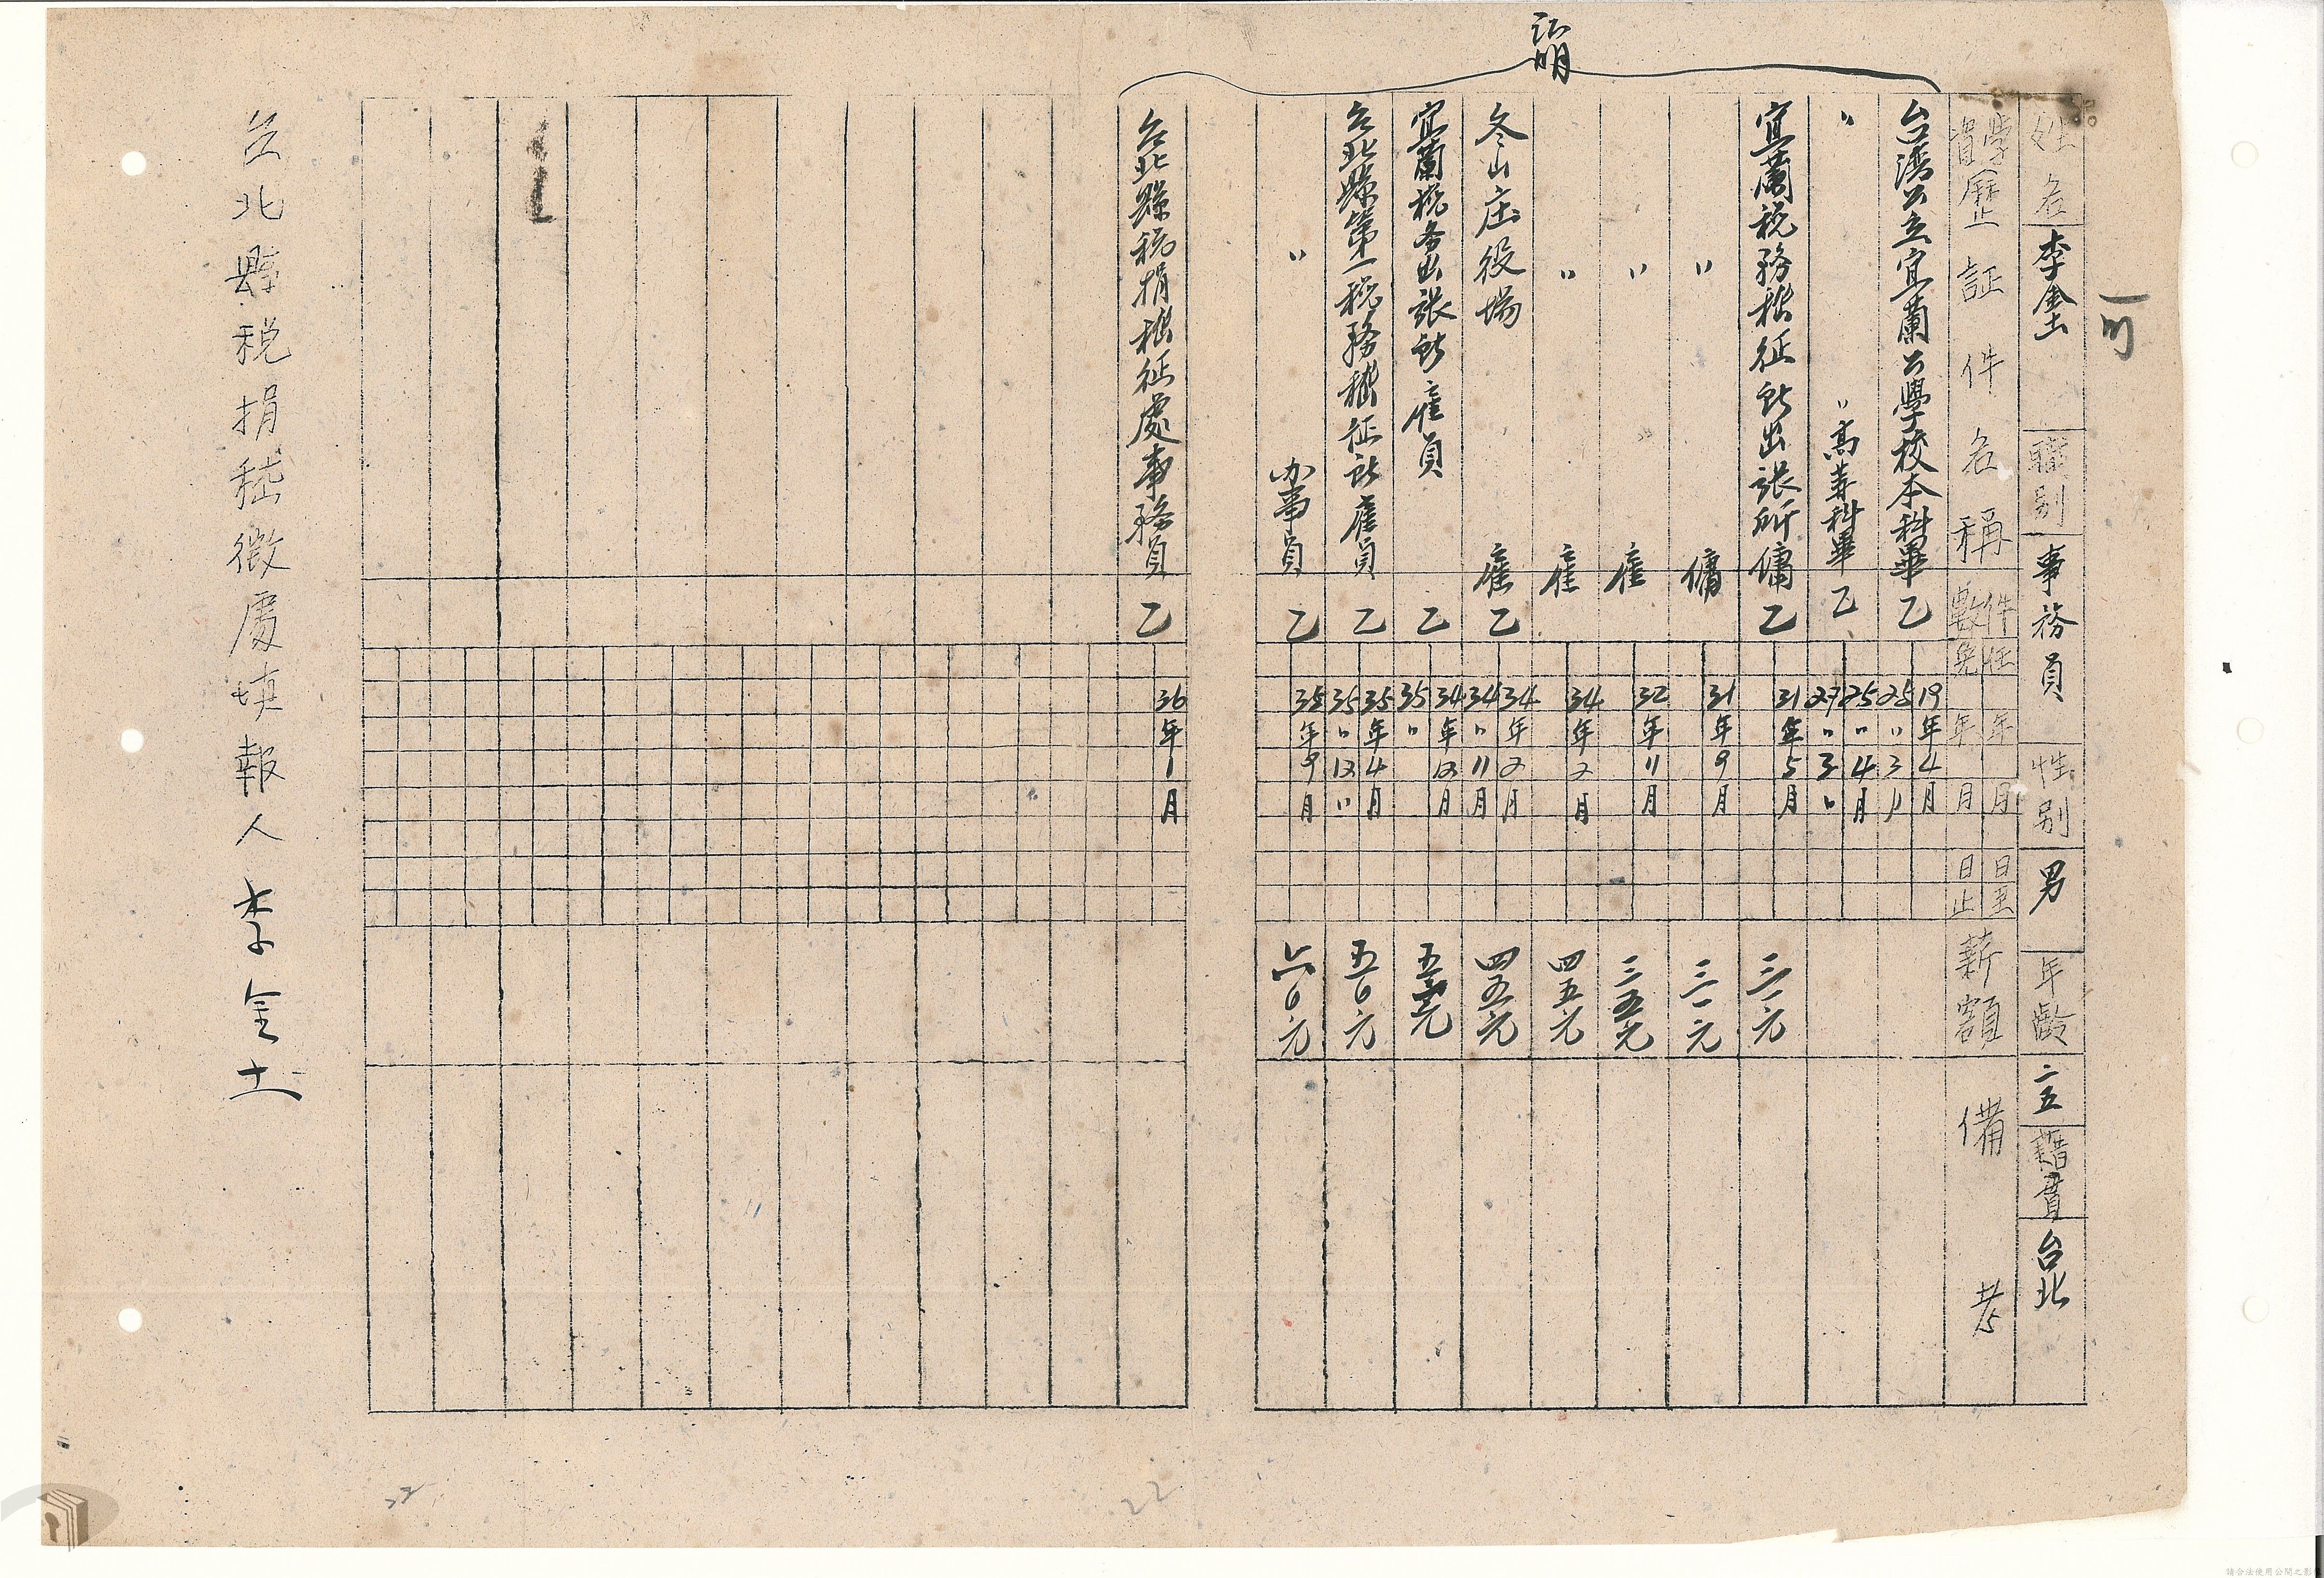 可
証明
姓名 李金土 職別 事務員 性別 男 年齡 二五 籍貫 台北
學資歷証件名稱 件數 任免 年月日至 年月日止 薪額 備考
台湾公立宜蘭公學校本科畢 乙 19年4月 25〃3〃
〃 〃高等科畢 乙 25〃4月 27〃3〃
宜蘭税務稽征所出張所傭 乙 31年5月 三一元
〃 傭 31年9月 三一元
〃 雇 32年11月 三五元
〃 雇 34年2月 四五元
冬山庄役場 雇 乙 34年2月 34〃11月 四五元
宜蘭税务出張所雇員 乙 34年12月 35〃
台北縣第一税務稽征所雇員 乙 35年4月 35〃12〃 五〇元
〃 办事員 乙 35年9月 六〇元
台北縣税捐稽征處事務員 乙 36年1月
台北縣税捐稽徵處填報人 李金土
22
22
請合法使用公開之影